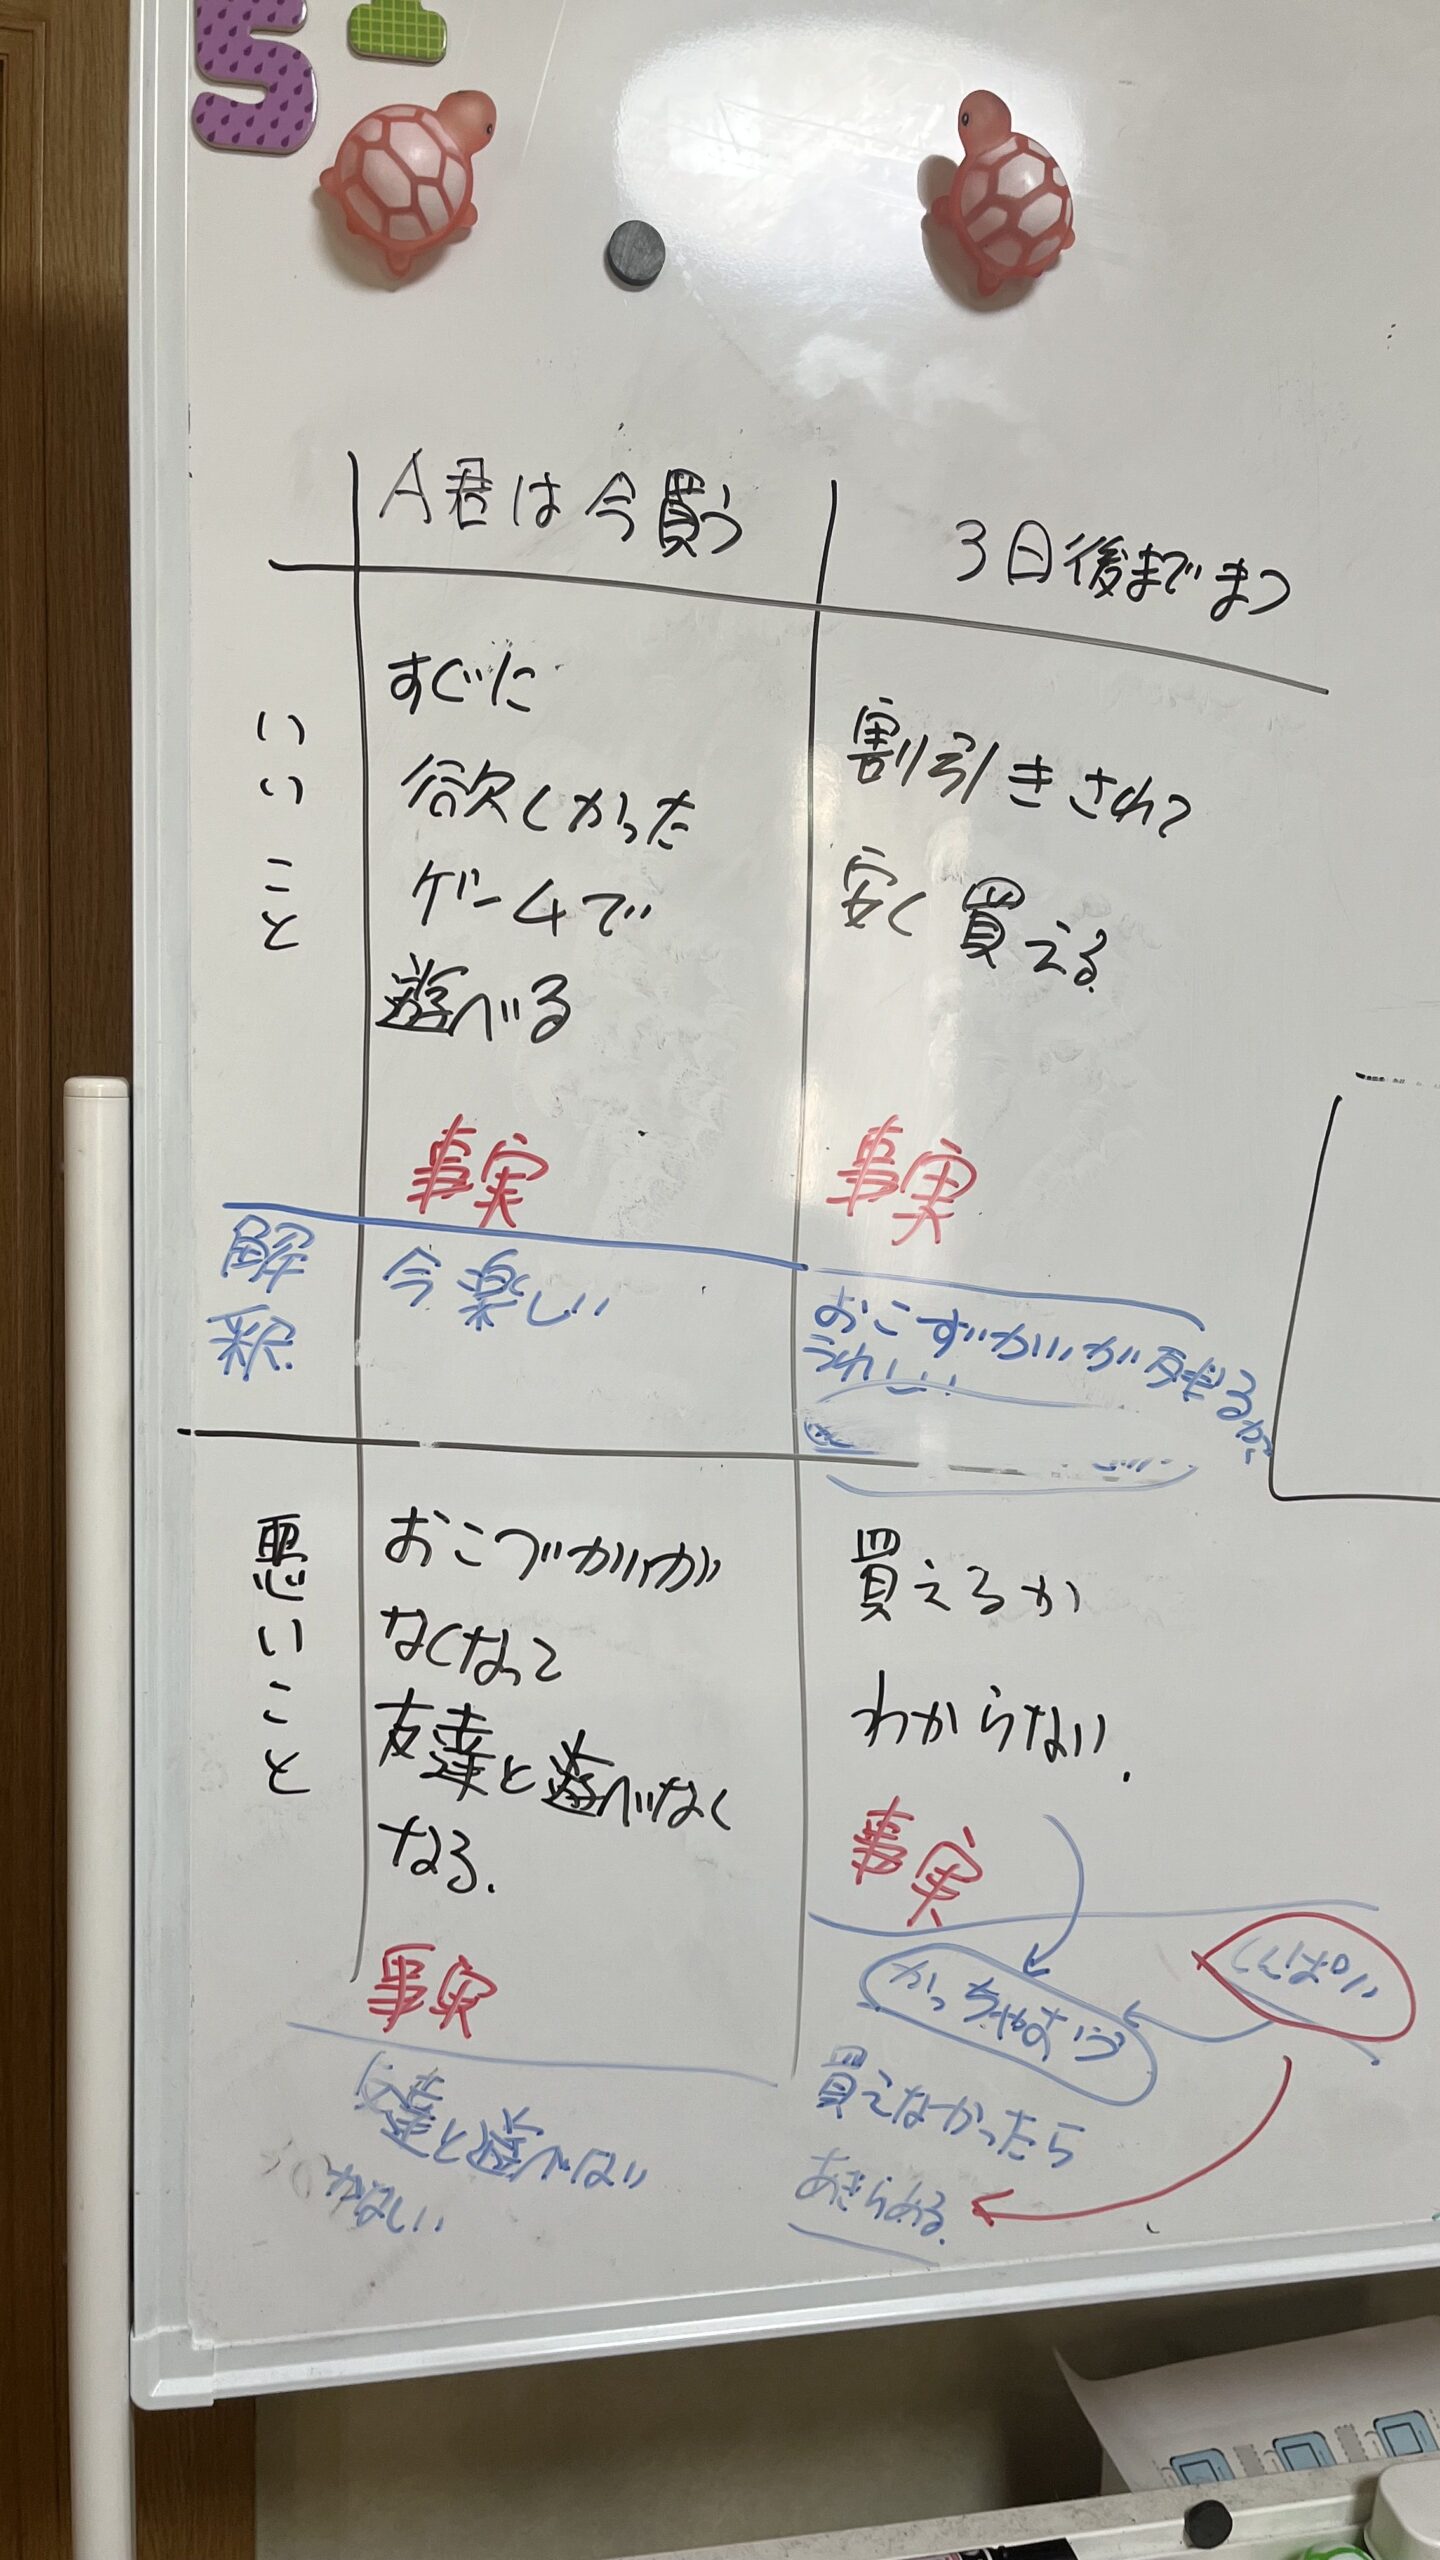 5
A君は今買う
3日後までまつ
いいこと
すぐに
欲しかった
ゲームで
遊べる
事実
割引きされて
安く買える.
事実
解釈
今楽しい
おこずかいが残るから
うれしい
悪いこと
おこづかいが
なくなって
友達と遊べなく
なる.
事実
友達と遊べない
かなしい
買えるか
わからない.
事実
しんぱい
かっちゃおう
買えなかったら
あきらめる.